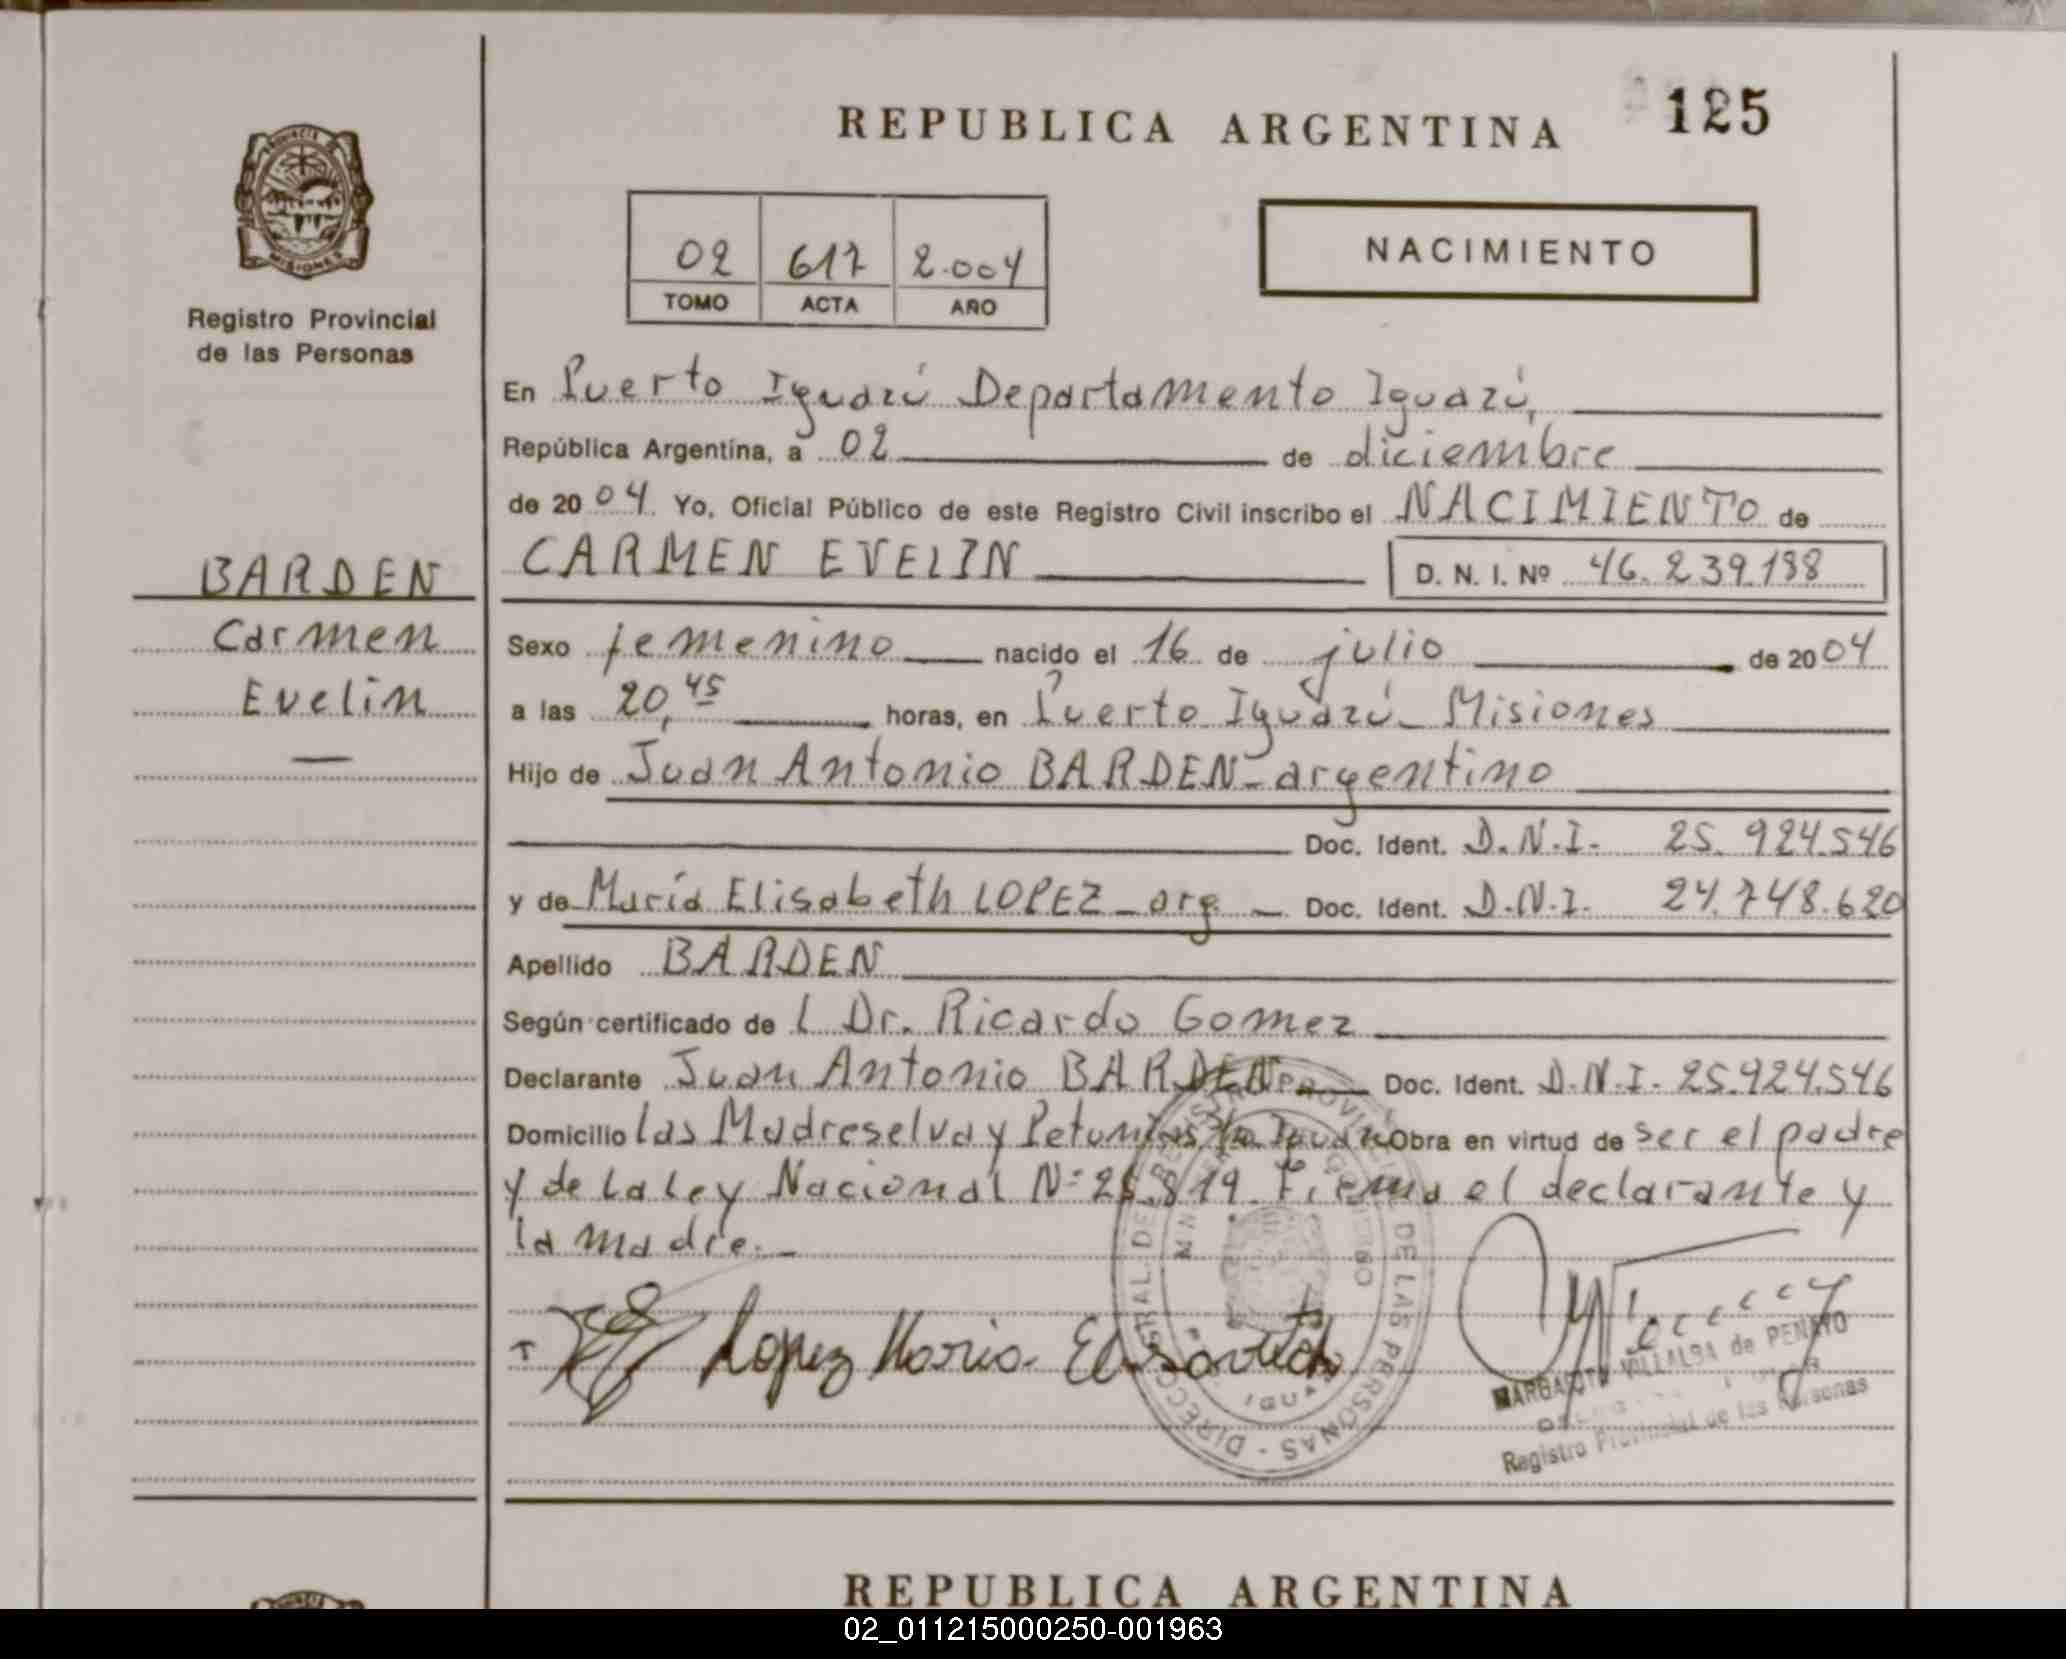 REPUBLICA ARGENTINA
125
PROVINCIA DE
MISIONES
Registro Provincial
de las Personas
02 617 2.004
TOMO ACTA AÑO
NACIMIENTO
En Puerto Iguazú Departamento Iguazú,
República Argentina, a 02 de diciembre
de 2004. Yo, Oficial Público de este Registro Civil inscribo el NACIMIENTO de
CARMEN EVELIN D. N. I. Nº 46.239.188
BARDEN
Carmen
Evelin
Sexo femenino nacido el 16 de julio de 2004
a las 20,45 horas, en Puerto Iguazú - Misiones
Hijo de Juan Antonio BARDEN - argentino
Doc. Ident. D.N.I. 25.924.546
y de María Elisabeth LOPEZ - arg. Doc. Ident. D.N.I. 24.748.620
Apellido BARDEN
Según certificado de l Dr. Ricardo Gomez
Declarante Juan Antonio BARDEN Doc. Ident. D.N.I. 25.924.546
Domicilio las Madreselva y Petunias Obra en virtud de ser el padre
y de la Ley Nacional Nº 25.819. Firma el declarante y
la madre.-
Lopez Maria
MARGARITA VILLALBA de PENAYO
Registro Provincial de las Personas
REPUBLICA ARGENTINA
02_011215000250-001963